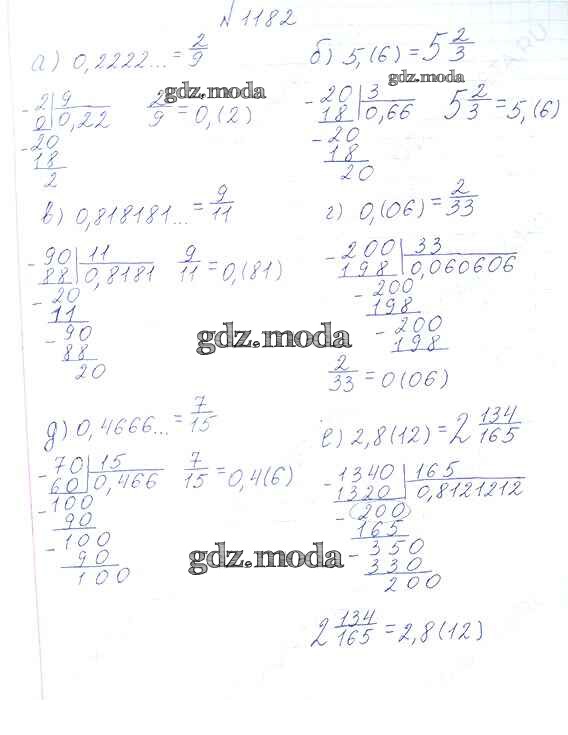 № 1182
а) 0,2222... = 2/9
gdz.moda
- 2 | 9
0 | 0,22
2/9 = 0,(2)
- 20
18
2
б) 5,(6) = 5 2/3
gdz.moda
- 20 | 3
18 | 0,66
5 2/3 = 5,(6)
- 20
18
20
в) 0,818181... = 9/11
- 90 | 11
88 | 0,8181
9/11 = 0,(81)
- 20
11
- 90
88
20
г) 0,(06) = 2/33
- 200 | 33
198 | 0,060606
- 200
198
- 200
198
2/33 = 0(06)
gdz.moda
д) 0,4666... = 7/15
- 70 | 15
60 | 0,466
7/15 = 0,4(6)
- 100
90
- 100
90
100
gdz.moda
е) 2,8(12) = 2 134/165
- 1340 | 165
1320 | 0,8121212
- 200
165
- 350
330
200
2 134/165 = 2,8(12)